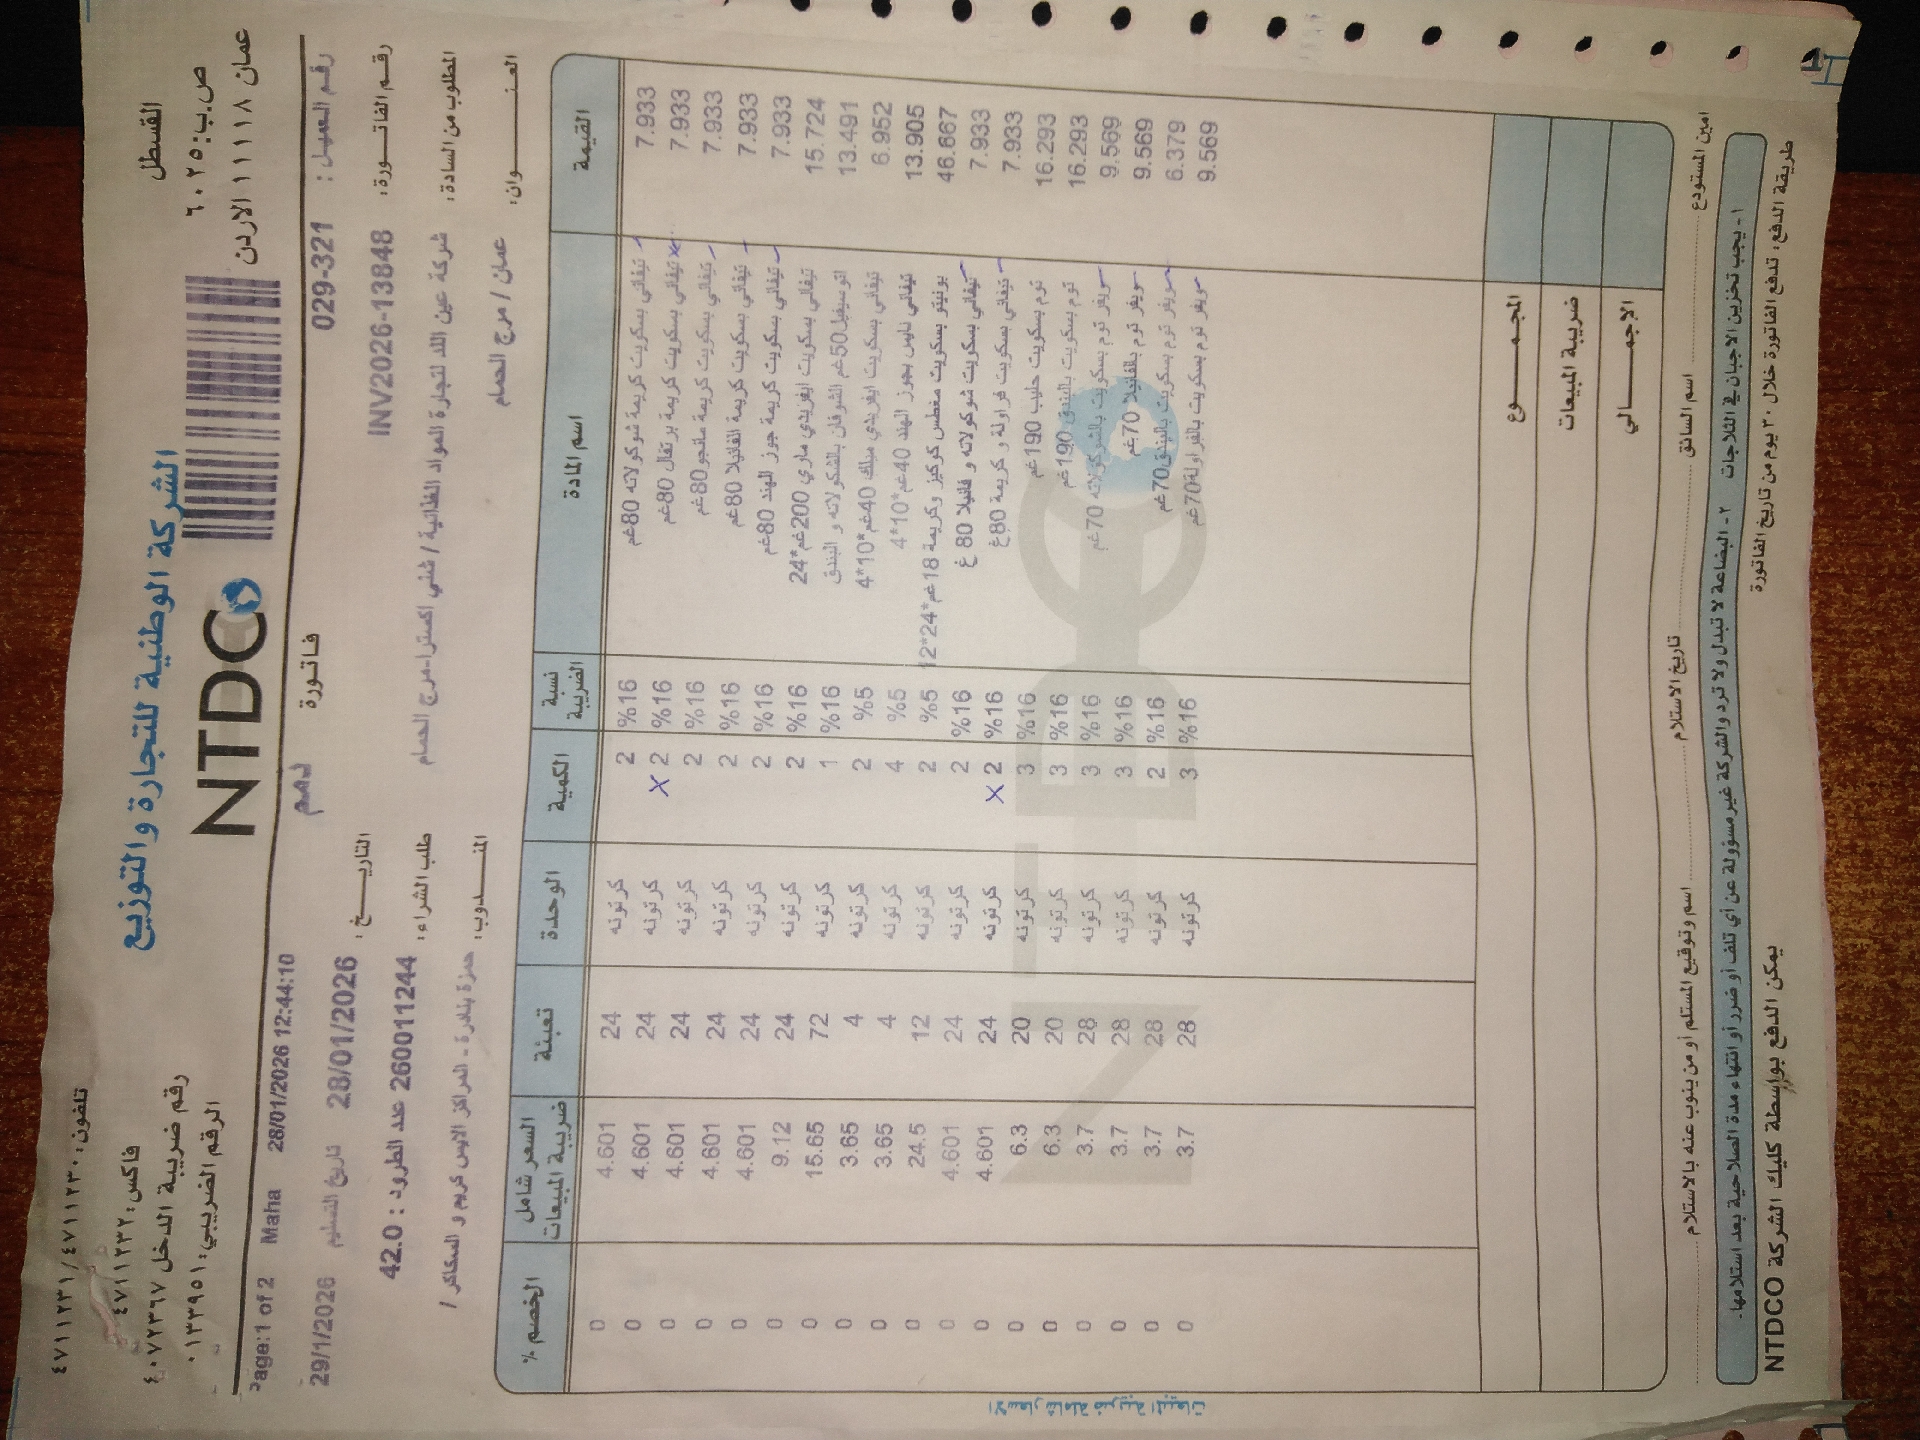 الشركة الوطنية للتجارة والتوزيع
NTDCO
القسطل
ص.ب: ٦٠٢٥
عمان ١١١١٨ الاردن
تلفون: ٤٧١١٢٣٠ / ٤٧١١٢٣١
فاكس: ٤٧١١٢٣٢
رقم ضريبة الدخل ٤٠٧٢٣٦٧
الرقم الضريبي: ٠١٣٣٩٥١
Page:1 of 2 Maha 28/01/2026 12:44:10
فاتورة
ذمم
رقم العميل: 029-321
رقم الفاتورة: INV2026-13848
التاريخ: 28/01/2026 تاريخ التسليم 29/1/2026
المطلوب من السادة: شركة عين اللد لتجارة المواد الغذائية / شني اكسترا-مرج الحمام
طلب الشراء: 26001244 عدد الطرود: 42.0
العنوان: عمان / مرج الحمام
المندوب: حمزة بنادرة - المراكز الايس كريم و السكاكر /
القيمة اسم المادة نسبة الضريبة الكمية الوحدة تعبئة السعر شامل ضريبة المبيعات الخصم %
7.933 تيفاني بسكويت كريمة شوكولاته 80غم %16 2 كرتونه 24 4.601 0
7.933 تيفاني بسكويت كريمة برتقال 80غم %16 2 X كرتونه 24 4.601 0
7.933 تيفاني بسكويت كريمة مانجو 80غم %16 2 كرتونه 24 4.601 0
7.933 تيفاني بسكويت كريمة الفانيلا 80غم %16 2 كرتونه 24 4.601 0
7.933 تيفاني بسكويت كريمة جوز الهند 80غم %16 2 كرتونه 24 4.601 0
15.724 تيفاني بسكويت ايفريدي ماري 200غم*24 %16 2 كرتونه 24 9.12 0
13.491 50غم الشوفان بالشكولاته و البندق %16 1 كرتونه 72 15.65 0
6.952 تيفاني بسكويت ايفريدي ميلك 40غم*10*4 %5 2 كرتونه 4 3.65 0
13.905 تيفاني نايس بجوز الهند 40غم*10*4 %5 4 كرتونه 4 3.65 0
46.667 بونيتو بسكويت مغطس كوكيز وكريمة 18غم*24*12 %5 2 كرتونه 12 24.5 0
7.933 تيفاني بسكويت شوكولاته و فانيلا 80 غ %16 2 كرتونه 24 4.601 0
7.933 تيفاني بسكويت فراولة و كريمة 80غ %16 2 X كرتونه 24 4.601 0
16.293 توم بسكويت حليب 190غم %16 3 كرتونه 20 6.3 0
16.293 توم بسكويت بالبندق 190غم %16 3 كرتونه 20 6.3 0
9.569 سويفر توم بسكويت بالشوكولاته 70غم %16 3 كرتونه 28 3.7 0
9.569 سويفر توم بالفانيلا 70غم %16 3 كرتونه 28 3.7 0
6.379 سويفر توم بسكويت بالبندق 70غم %16 2 كرتونه 28 3.7 0
9.569 سويفر توم بسكويت بالفراولة 70غم %16 3 كرتونه 28 3.7 0
المجمـــوع
ضريبة المبيعات
الاجمـــالي
الاسعار شاملة ضريبة المبيعات
امين المستودع اسم السائق تاريخ الاستلام اسم وتوقيع المستلم أو من ينوب عنه بالاستلام
١- يجب تخزين الاجبان في الثلاجات ٢- البضاعة لا تبدل ولا ترد والشركة غير مسؤولة عن أي تلف أو ضرر أو انتهاء مدة الصلاحية بعد استلامها.
طريقة الدفع: تدفع الفاتورة خلال ٣٠ يوم من تاريخ الفاتورة
يمكن الدفع بواسطة كليك الشركة NTDCO